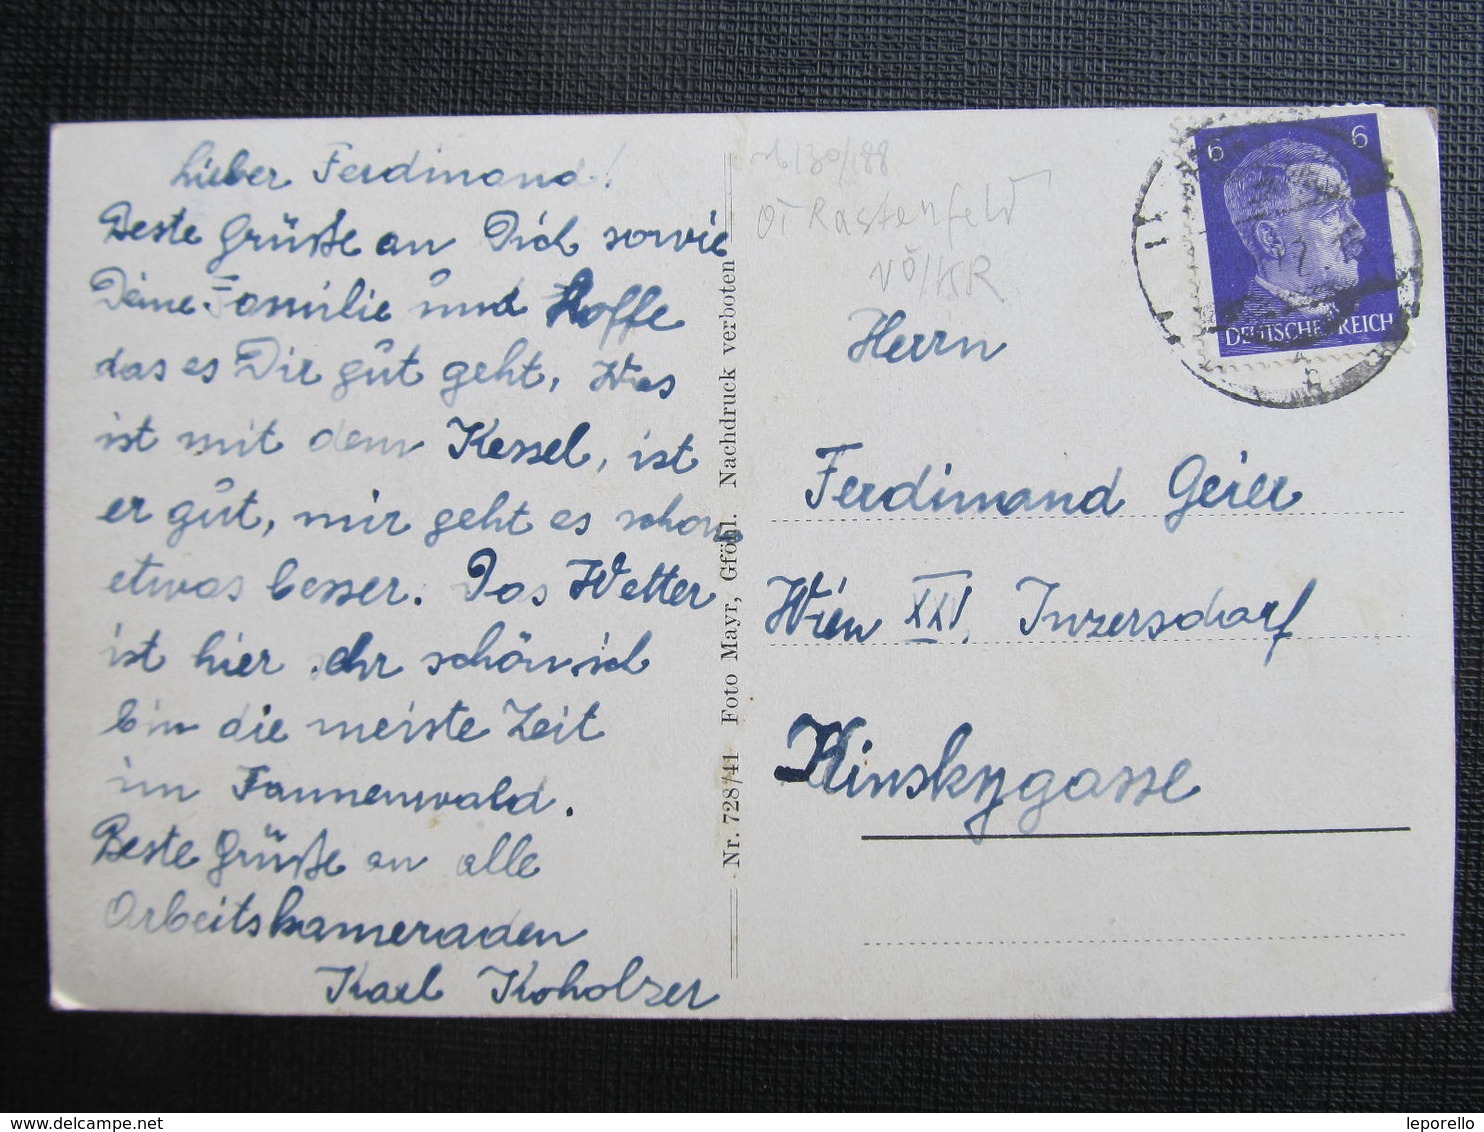 Lieber Ferdinand!
Beste Grüße an Dich sowie
Deine Familie und hoffe
das es Dir gut geht, Was
ist mit dem Kessel, ist
er gut, mir geht es schon
etwas besser. Das Wetter
ist hier sehr schön, ich
bin die meiste Zeit
im Tannenwald.
Beste Grüße an alle
Arbeitskameraden
Karl Koholzer
Nr. 728/41 Foto Mayr, Gföhl. Nachdruck verboten
Rastenfeld
NÖ/KR
6 6
DEUTSCHES REICH
Herrn
Ferdinand Geier
Wien XXV. Inzersdorf
Kinskygasse
leporello